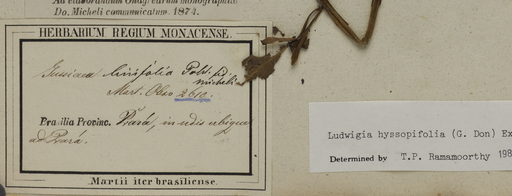 Ad elaborandum Onagrearum monographiae
Do. Micheli communicatum. 1874.
HERBARIUM REGIUM MONACENSE.
Jussiaea linifolia Pohl. fid
micheli
Mart. Obs. 2610.
Brasilia Provinc. Pará, in udis ubique
ad Pará.
Martii iter brasiliense.
Ludwigia hyssopifolia (G. Don) Ex
Determined by T.P. Ramamoorthy 198